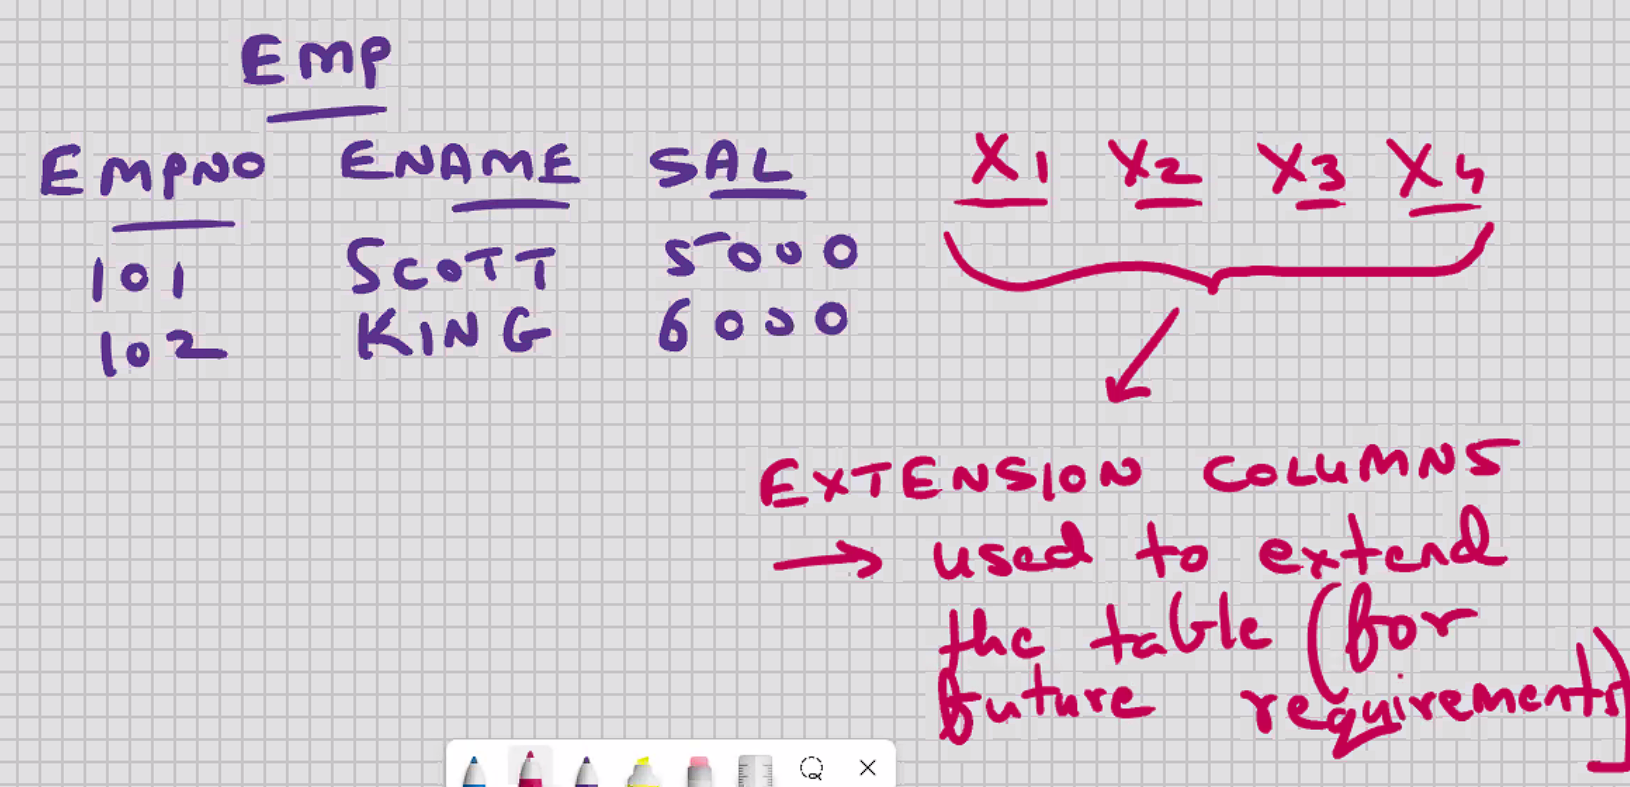 EMP
EMPNO ENAME SAL X1 X2 X3 X4
101 SCOTT 5000
102 KING 6000
EXTENSION COLUMNS
→ used to extend
the table (for
future requirements)